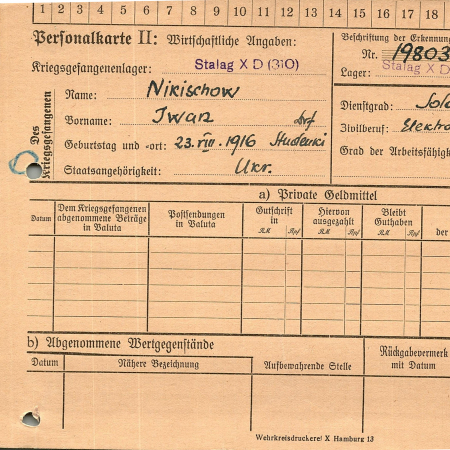 1 2 3 4 5 6 7 8 9 10 11 12 13 14 15 16 17 18
Personalkarte II: Wirtschaftliche Angaben:
Beschriftung der Erkennun
Nr. 19803
Kriegsgefangenenlager: Stalag X D (310)
Lager: Stalag X D
Des Kriegsgefangenen
Name: Nikischow
Vorname: Iwan
Dienstgrad: Sol
Geburtstag und -ort: 23. VIII. 1916 Dorf Studenki
Zivilberuf: Elektro
Staatsangehörigkeit: Ukr.
Grad der Arbeitsfähigk
a) Private Geldmittel
Datum
Dem Kriegsgefangenen abgenommene Beträge in Valuta
Postsendungen in Valuta
Gutschrift in
RM Rpf
Hiervon ausgezahlt
RM Rpf
Bleibt Guthaben
RM Rpf
der
b) Abgenommene Wertgegenstände
Datum
Nähere Bezeichnung
Aufbewahrende Stelle
Rückgabevermerk mit Datum
Wehrkreisdruckerei X Hamburg 13